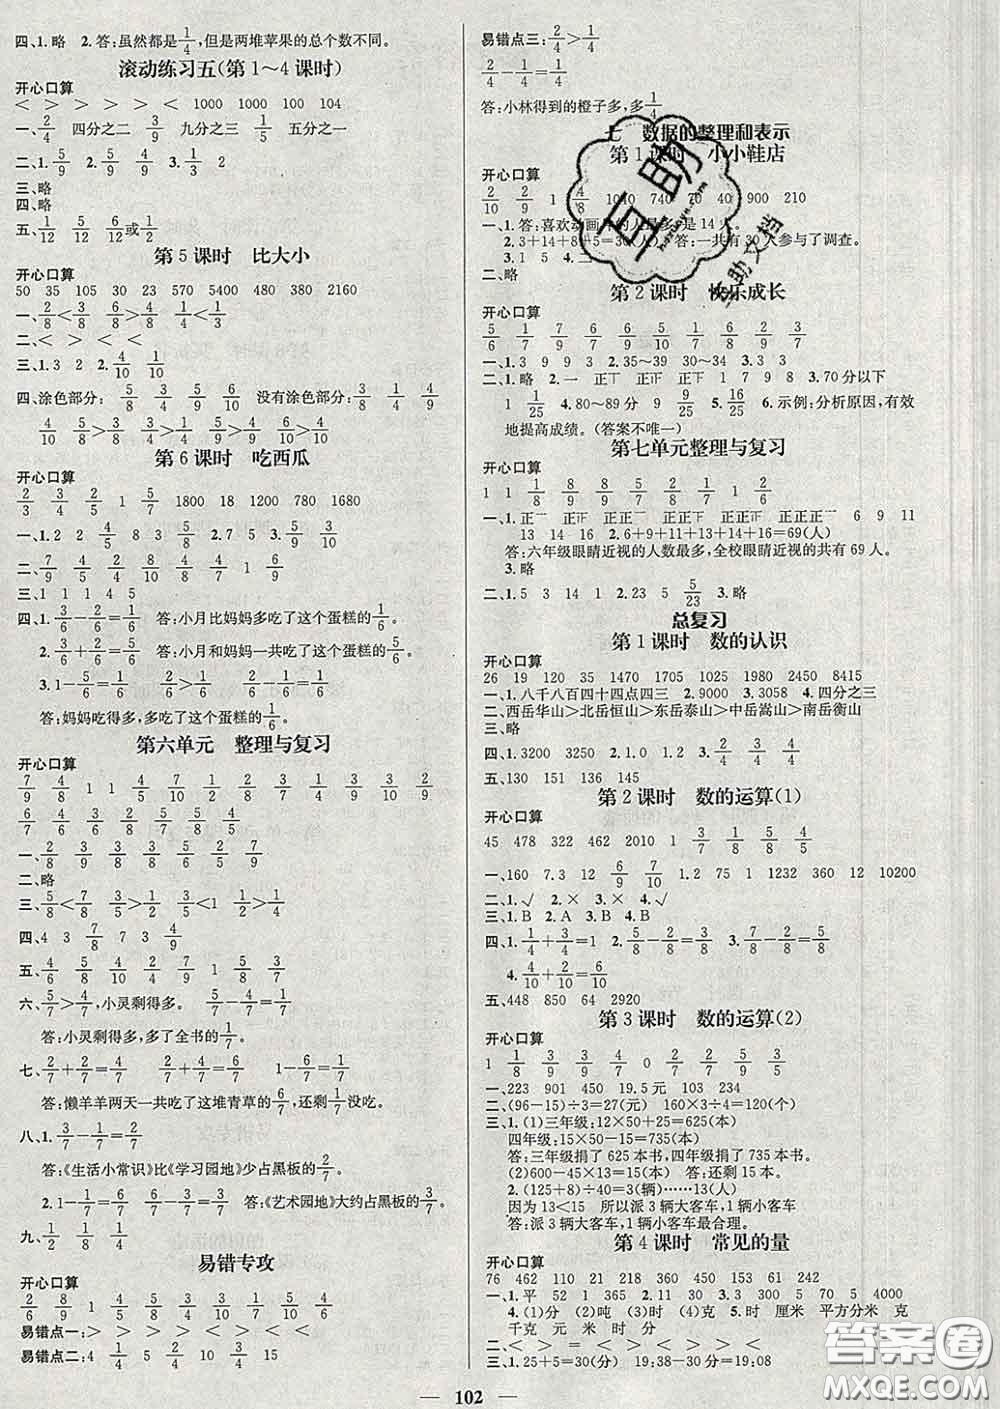 四、1.略 2.答:虽然都是1/4,但是两堆苹果的总个数不同。
滚动练习五(第1~4课时)
开心口算
< > > > > < 1000 1000 100 104
一、2/4 四分之二 3/9 九分之三 1/5 五分之一
二、1.5/9 2.5/9 3.1/2
三、略
四、略
五、1/12 5/12 6/12或1/2
第5课时 比大小
50 35 105 30 23 570 5400 480 380 2160
一、2/8<3/8 6/8>4/8 1/5<1/3
二、< > < <
三、1.3 2 2.4/10 1/10
四、涂色部分: 5/8 5/9 6/10 没有涂色部分:3/8 4/9 4/10
5/8>3/8 5/9>4/9 6/10>4/10
第6课时 吃西瓜
开心口算
2/3 3/4 2/5 1 5/7 1800 18 1200 780 1680
一、1.2 2 4/5 8/9 2.7 5 3.5/10 9/10
二、7/9 6/8 5/8 4/9 8/10 4/7 4/10 5/6
三、1 1 1 4 5
四、1.3/6-2/6=1/6 答:小月比妈妈多吃了这个蛋糕的1/6。
2.3/6+2/6=5/6 答:小月和妈妈一共吃了这个蛋糕的5/6。
3.1-5/6=1/6 2/6>1/6 2/6-1/6=1/6
答:妈妈吃得多,多吃了这个蛋糕的1/6。
第六单元 整理与复习
开心口算
7/9 4/8 1 1 1/4 4/5 7/10 2/2 3/8 4/10 3/8 2/9
6/7 4/8 3/10 3/7 5/8 5/7 4/5
一、2/8 3/9 3/10 4/8 6/8 2/5 7/9
二、略
三、5/8<7/8 3/5>2/5 3/5<1 1/2>1/3
四、4 3 7/8 7 3 4/9
五、4/5 6/8 4/10 2/4 6/9 1 5/8 3/7
六、5/7>4/7,小灵剩得多。 5/7-4/7=1/7
答:小灵剩得多,多了全书的1/7。
七、2/7+2/7=4/7 4/7+2/7=6/7 1-6/7=1/7
答:懒羊羊两天一共吃了这堆青草的6/7,还剩1/7没吃。
八、1.3/7-1/7=2/7
答:《生活小常识》比《学习园地》少占黑板的2/7。
2.1-1/7=6/7 6/7-3/7=3/7 答:《艺术园地》大约占黑板的3/7。
九、1/2 1/8 3/4
易错专攻
开心口算
2/6 8/9 1 4/9 2/10 3/7 1/6 4/8
易错点一:> > > < > < < >
易错点二:4 1/4 5 2/10 3/10 15
易错点三:2/4>1/4
2/4-1/4=1/4
答:小林得到的橙子多,多1/4
七 数据的整理和表示
第1课时 小小鞋店
开心口算
2/10 2/9 1 4/8 1040 740 70 40 900 210
一、1.答:喜欢动画片的人最多,是14人。
2.3+14+8+5=30(人) 答:一共有30人参与了调查。
3.1 5 4.二
二、略
第2课时 快乐成长
开心口算
5/6 5/7 1/9 6/8 1/2 2/8 3/9 3/7
一、1.3 9 5 2.35~39 30~34 3.3 3
二、1.略 2.一 正丅 正正 正丅 1 7 9 8 3.70分以下
1 1/25 4.80~89分 9 9/25 5.16/25 6.示例:分析原因,有效
地提高成绩。(答案不唯一)
第七单元整理与复习
开心口算
1 1 1/8 8/9 8/9 5/7 2/8 1/7 1 2/6
一、1.正一 正正一 正正 正正 正正 正正正一 6 9 11
13 14 16 2.6+9+11+13+14+16=69(人)
答:六年级眼睛近视的人数最多,全校眼睛近视的共有69人。
3.略
二、1.5 3 14 1 2.23 5 5/23 3.略
总复习
第1课时 数的认识
开心口算
26 19 120 35 1470 1705 1025 1980 2450 8415
一、1.八千八百四十四点四三 2.9000 3.3058 4.四分之三
二、西岳华山>北岳恒山>东岳泰山>中岳嵩山>南岳衡山
三、略
四、1.3200 3250 2.1.0 1.2 3.1/4 2/4
五、130 151 136 145
第2课时 数的运算(1)
开心口算
45 478 322 462 2010 1 3/7 5/8 4/5
一、160 7.3 12 6/9 7/10 1.2 75 1 1232 360 12 10200
二、1.√ 2.× 3.× 4.√
三、1.B 2.A 3.B 4.B
四、1.1/4+3/4=1 2.5/8-2/8=3/8 3.7/8-2/8=5/8
4.4/10+2/10=6/10
五、448 850 64 2920
第3课时 数的运算(2)
开心口算
1 1/8 3/9 3/9 4/7 0 2/7 2/8 3/9
一、223 901 450 19.5元 103 504
二、(96-15)÷3=27(元) 160×3÷4=120(个)
三、1.(1)三年级:12×50+25=625(本)
四年级:15×50-15=735(本)
答:三年级捐了625本书,四年级捐了735本书。
(2)600-45×13=15(本) 答:还剩15本。
2.(125+8)÷40=3(辆)……13(人)
因为13<15 所以派3辆大客车,1辆小客车
答:派3辆大客车,1辆小客车最合理。
第4课时 常见的量
开心口算
76 462 110 21 218 360 450 153 61 242
一、1.平 52 1 365 2.11 30 3.3 300 4000 5
4.(1)分 (2)吨 (3)时 (4)克 5.时 厘米 平方分米 克
千克 元 米 时 分
二、< = > < = > < > <
三、1.25+5=30(分) 19:38-30分=19:08
102
互助
互助文档
答案圈
MXQE.COM